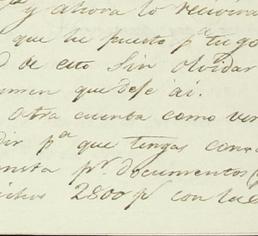 y ahora lo recivira
que he puesto pª tu go
d de esto sin olvidar
umen que dejé ai.
Otra cuenta como ver
dir pª que tengas cono
pr. documentos
2800 p con la